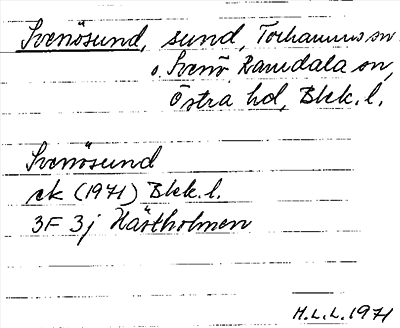 Svenösund, sund, Torhamns sn
o. Svenö Ramdala sn,
Östra hd, Blek. l.
Svenösund
ek (1971) Blek. l.
3F 3j Hästholmen
H.L.L. 1971